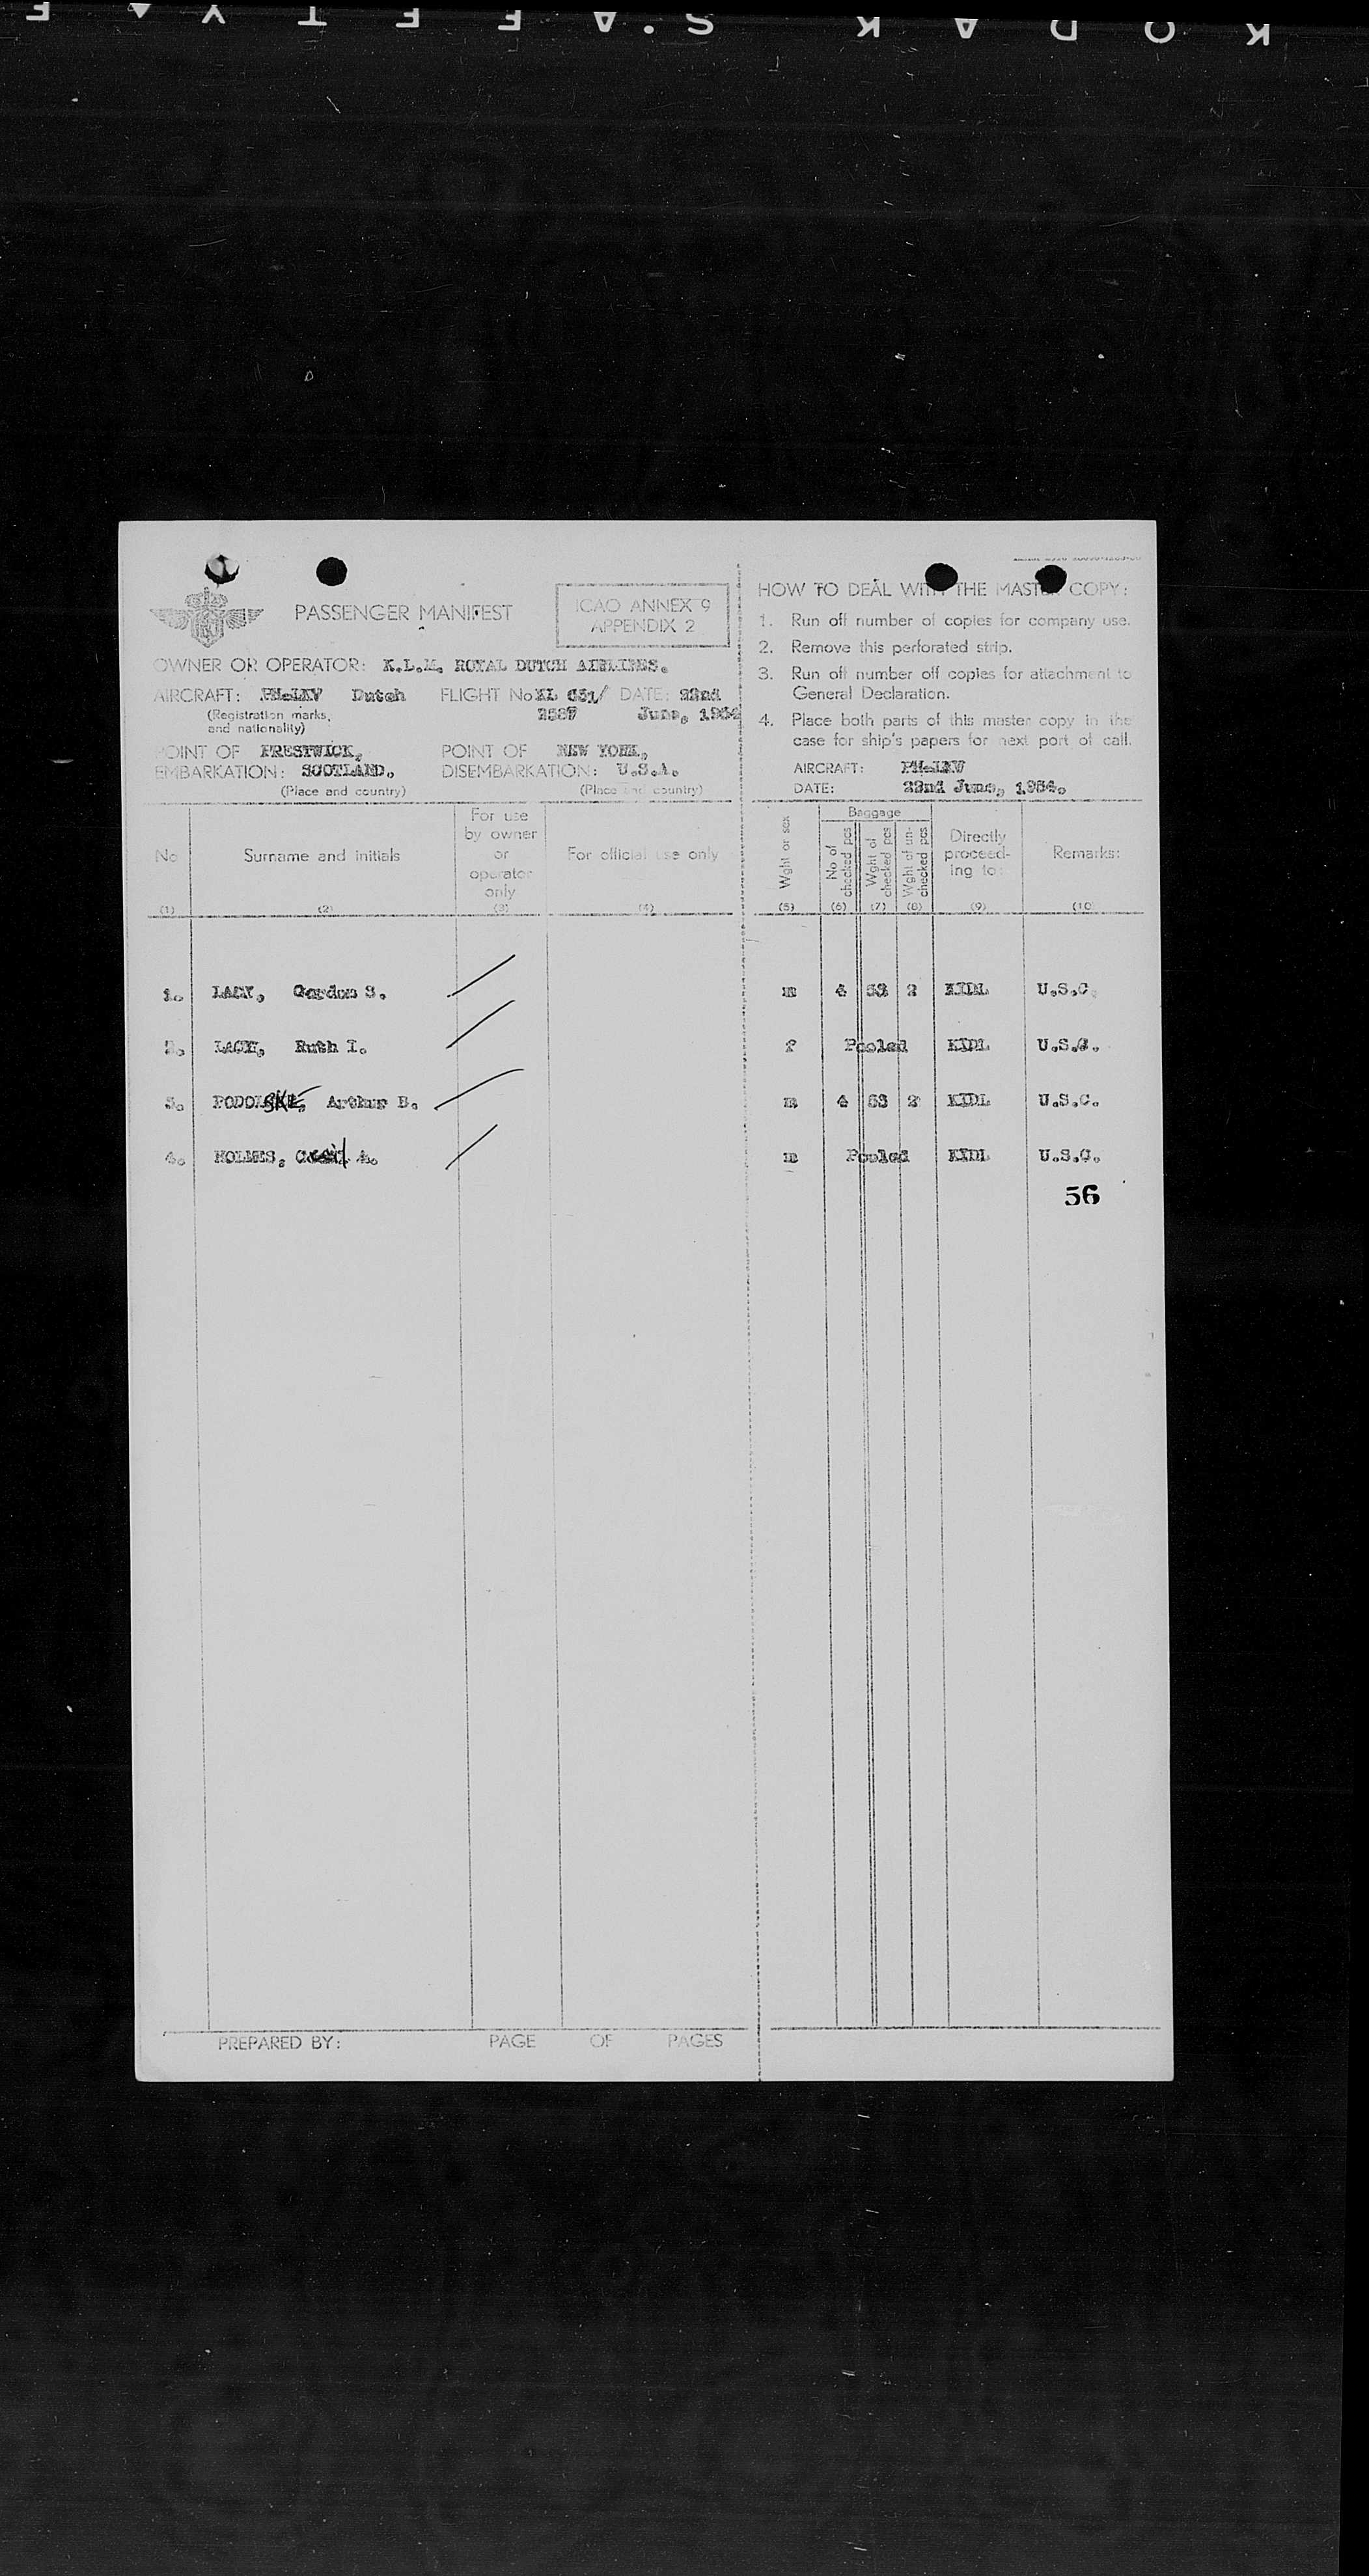 KODAK S.AFETY F
PASSENGER MANIFEST
ICAO ANNEX 9
APPENDIX 2
OWNER OR OPERATOR: K.L.M. ROYAL DUTCH AIRLINES.
AIRCRAFT: Dutch FLIGHT No KL DATE: 22nd
(Registration marks, and nationality) June, 1954
POINT OF PRESTWICK, POINT OF NEW YORK,
EMBARKATION: SCOTLAND. DISEMBARKATION: U.S.A.
(Place and country) (Place and country)
HOW TO DEAL WITH THE MASTER COPY:
1. Run off number of copies for company use.
2. Remove this perforated strip.
3. Run off number off copies for attachment to
General Declaration.
4. Place both parts of this master copy in the
case for ship's papers for next port of call.
AIRCRAFT:
DATE: 22nd June, 1954.
No (1)
Surname and initials (2)
For use by owner or operator only (3)
For official use only (4)
Wght or sex (5)
Baggage
No of checked pcs (6)
Wght of checked pcs (7)
Wght of un-checked pcs (8)
Directly proceed-ing to: (9)
Remarks: (10)
1. LACY, Gordon S. m 4 2 KIDL U.S.C
2. LACY, Ruth I. f Pooled KIDL U.S.C.
3. Arthur B. m 4 53 2 KIDL U.S.C.
4. HOLMES, A. m Pooled KIDL U.S.C.
56
PREPARED BY: PAGE OF PAGES